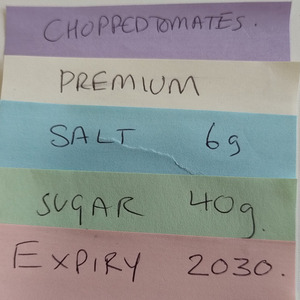 CHOPPEDTOMATES.
PREMIUM
SALT 6g
SUGAR 40g.
EXPIRY 2030.